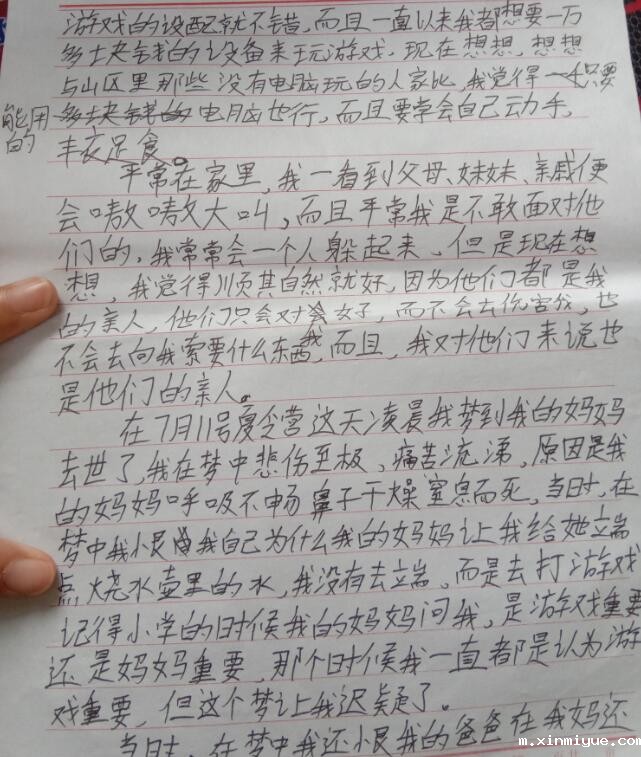 游戏的设配就不错，而且一直以来我都想要一万
多块钱的设备来玩游戏，现在想想，想想
与山区里那些没有电脑玩的人家比，我觉得一只要
能用的
多块钱的电脑也行，而且要学会自己动手，
丰衣足食。
平常在家里，我一看到父母、妹妹、亲戚便
会嗷嗷大叫，而且平常我是不敢面对他
们的，我常常会一个人躲起来，但是现在想
想，我觉得顺其自然就好，因为他们都是我
的亲人，他们只会对我好，而不会去伤害我，也
不会去向我索要什么东西，而且，我对他们来说也
是他们的亲人。
在7月11号夏令营这天凌晨我梦到我的妈妈
去世了，我在梦中悲伤至极，痛苦流涕，原因是我
的妈妈呼吸不畅鼻子干燥窒息而死，当时，在
梦中我恨我自己为什么我的妈妈让我给她端
点烧水壶里的水，我没有去端，而是去打游戏
记得小学的时候我的妈妈问我，是游戏重要
还是妈妈重要，那个时候我一直都是认为游
戏重要，但这个梦让我迟疑了。
当时，在梦中我还恨我的爸爸在我妈还
m.xinmiyue.com